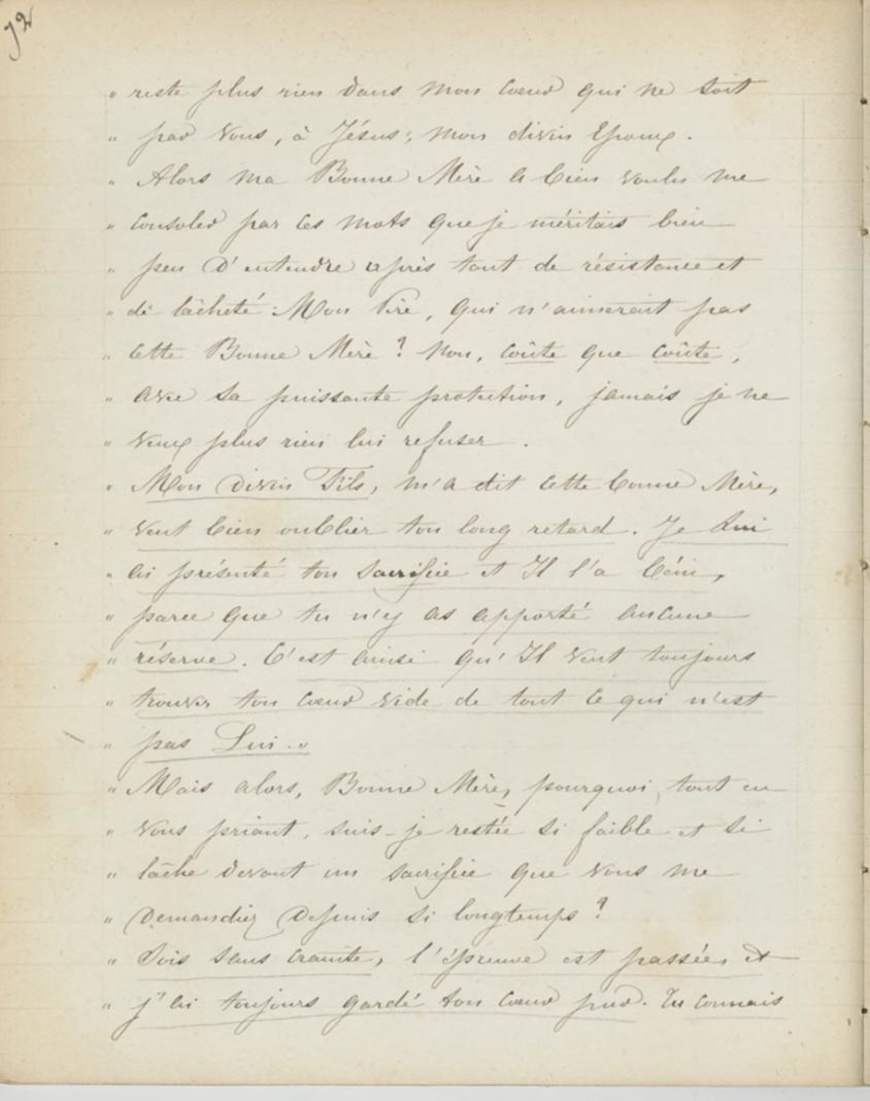 72
" reste plus rien dans mon cœur qui ne soit
" par vous, ô Jésus, mon divin Epoux.
" Alors ma Bonne Mère a bien voulu me
" consoler par ces mots que je méritais bien
" peu d'entendre après tant de résistance et
" de lâcheté : Mon Père, qui n'aimerait pas
" cette Bonne Mère ? Non, coûte que coûte,
" avec sa puissante protection, jamais je ne
" veux plus rien lui refuser.
" Mon divin Fils, m'a dit cette bonne Mère,
" veut bien oublier ton long retard. Je Lui
" ai présenté ton sacrifice et Il l'a béni,
" parce que tu n'y as apporté aucune
" réserve. C'est ainsi qu'Il veut toujours
" trouver ton cœur vide de tout ce qui n'est
" pas Lui. "
" Mais alors, Bonne Mère, pourquoi, tout en
" vous priant, suis-je restée si faible et si
" lâche devant un sacrifice que vous me
" demandiez depuis si longtemps ?
" Sois sans crainte, l'épreuve est passée, et
" j'ai toujours gardé ton cœur pur. Tu connais